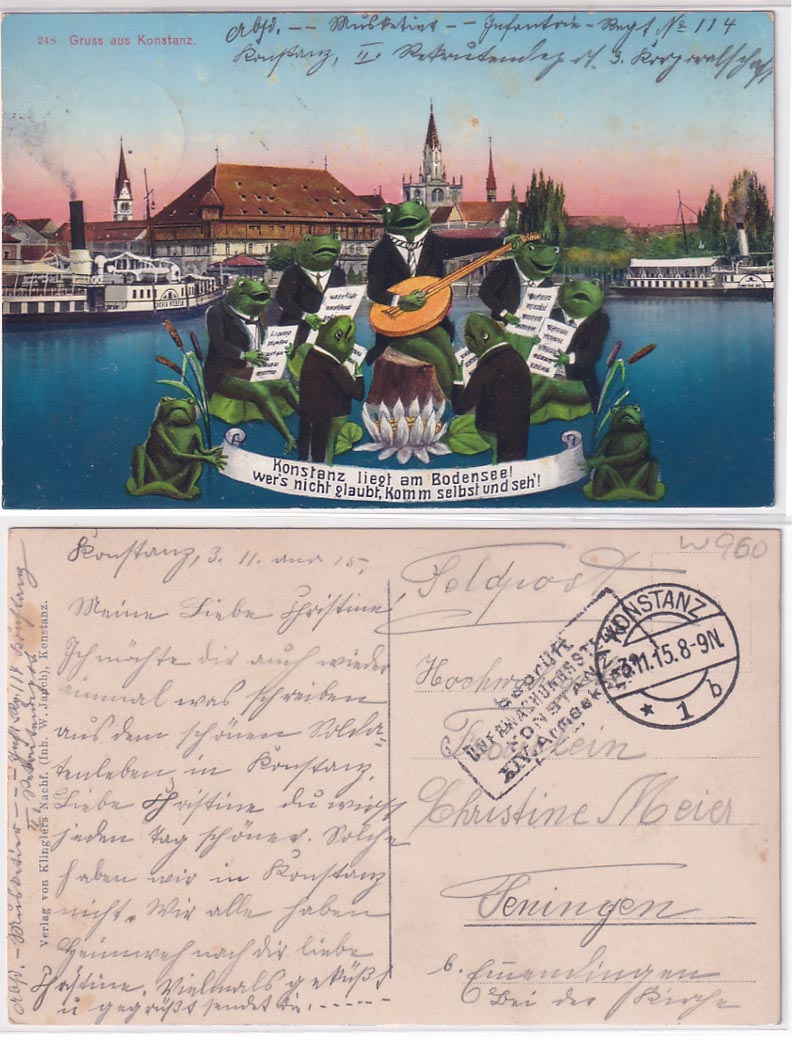 248 Gruss aus Konstanz.
Absd. -- Musketier -- Infantrie-Regt No 114
Konstanz, II. Rekrutendepot 3. Korporalschaft
Konstanz liegt am Bodensee!
wer's nicht glaubt, Komm selbst und seh'!
W960
Konstanz, 3. 11. und 15.
Meine Liebe Christine!
Ich möchte dir auch wieder
einmal was schreiben
aus dem schönen Solda-
tenleben in Konstanz.
Liebe Christine du wirst
jeden Tag schöner. Solche
haben wir in Konstanz
nicht. Wir alle haben
Heimweh nach dir liebe
Christine. Vielmals geküßt
u gegrüßt sendet dir.------
Absd. - Musketier -- Inft Rg. 114 Konstanz
II Rekrutendepot
Verlag von Klinglers Nachf. (Inh. W. Jauch), Konstanz.
Feldpost
geprüft
ÜBERWACHUNGSSTELLE
KONSTANZ
XIV. Armeekorps
KONSTANZ
3.11.15.8-9N.
* 1 b
Fräulein
Christine Meier
Teningen
b. Emendingen
Bei der Kirche